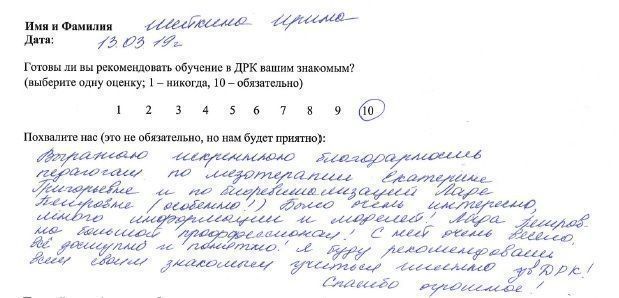 Имя и Фамилия Шеткина Ирина
Дата: 13.03 19г
Готовы ли вы рекомендовать обучение в ДРК вашим знакомым?
(выберите одну оценку; 1 – никогда, 10 – обязательно)
1 2 3 4 5 6 7 8 9 10
Похвалите нас (это не обязательно, но нам будет приятно):
Выражаю искреннюю благодарность
педагогам по мезотерапии Екатерине
Григорьевне и по биоревитализации Ладе
(особенно!) Было очень интересно,
много информации и моделей! Лада
на большой профессионал! С ней очень весело,
всё доступно и понятно! Я буду рекомендовать
всем своим знакомым учиться именно в ДРК!
Спасибо огромное!